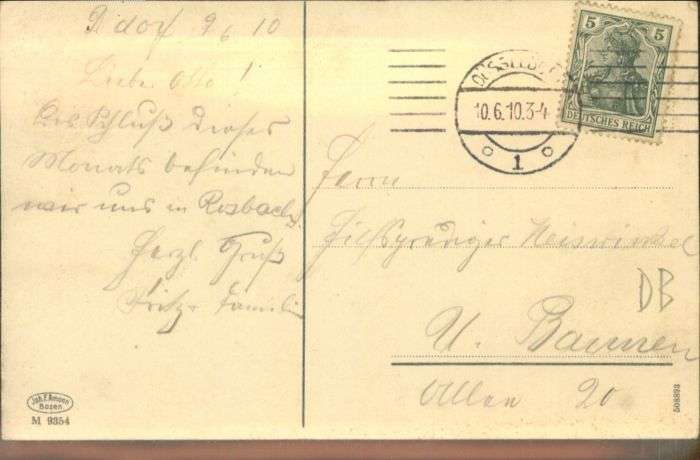 Ddorf 9/6 10
Liebe Otto!
Bis Schluß dieses
Monats befinden
wir uns in Rosbach/S.
Herzl. Gruß
Fritz + Familie
5 5
DEUTSCHES REICH
10.6.10.3-4
1
Herrn
Hilfsprediger Heiswinkel
U. Barmen
Allee 20
DB
Joh. F. Amonn
Bozen
M 9354
508893